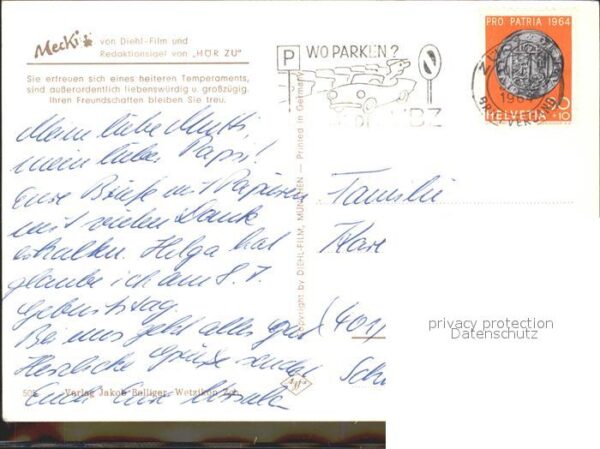 Mecki von Diehl-Film und
Redaktionsigel von „HÖR ZU"
Sie erfreuen sich eines heiteren Temperaments,
sind außerordentlich liebenswürdig u. großzügig.
Ihren Freundschaften bleiben Sie treu.
Meine liebe Mutti
mein lieber Papsi!
Eure Briefe mit Papieren
mit vielen Dank
erhalten. Helga hat
glaube ich am 8. 7.
Geburtstag.
Bei uns geht alles gut
Herzliche Grüße sendet
Euch Eure Ursula
505 Verlag Jakob Bolliger, Wetzikon
Copyright by DIEHL-FILM, MÜNCHEN — Printed in Germany
P WO PARKEN?
PRO PATRIA 1964
HELVETIA +10
Familie
Kare
(401)
Sch
Agfa
privacy protection
Datenschutz